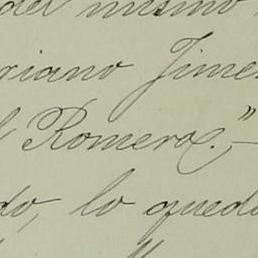 del mismo
riano Jime
l Romero."—
do, lo qued